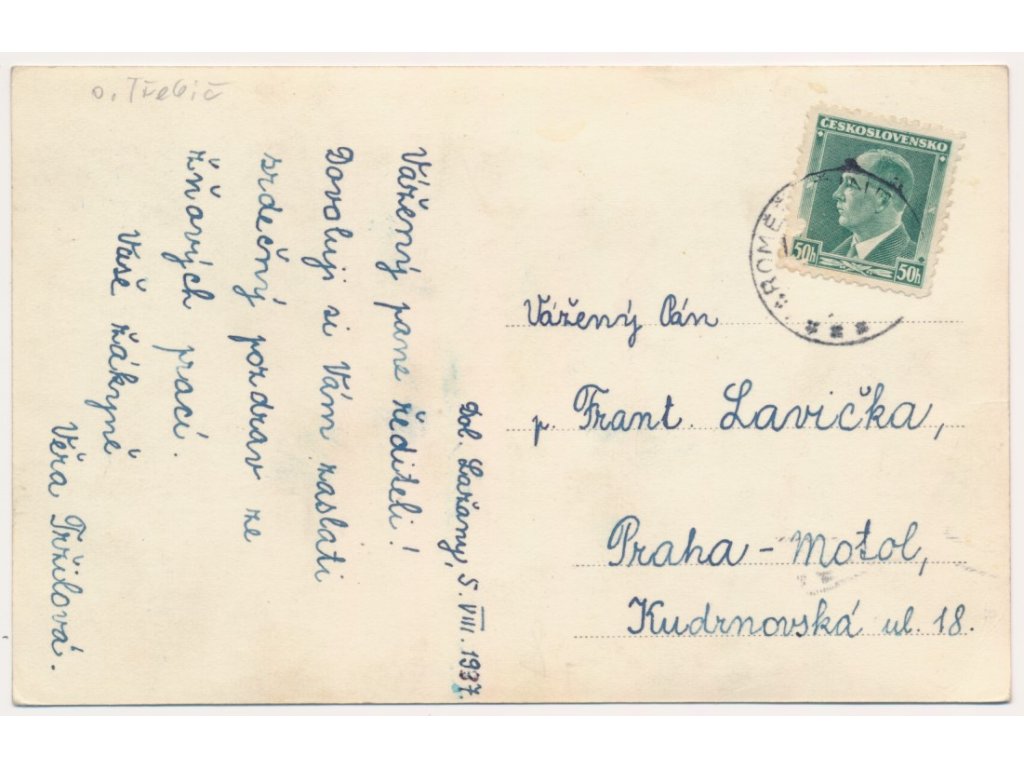 o. Třebíč
Dol. Lažany, 5. VIII. 1937.
Vážený pane řediteli!
Dovoluji si Vám zaslati
srdečný pozdrav ze
žňových prací.
Vaše žákyně
Věra Tržilová.
ČESKOSLOVENSKO
50h 50h
Vážený Pán
p. Frant. Lavička,
Praha - Motol,
Kudrnovská ul. 18.